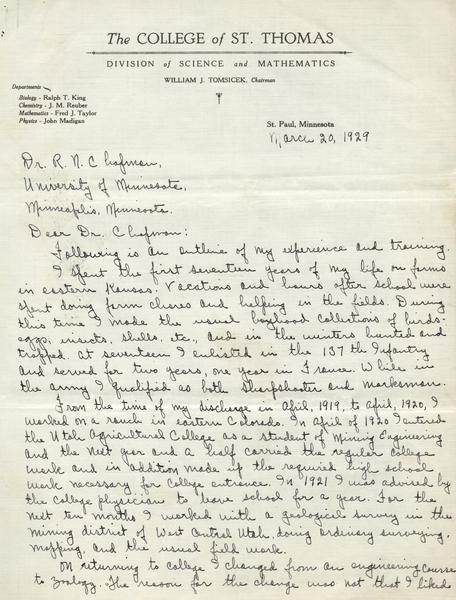 The COLLEGE of ST. THOMAS
DIVISION of SCIENCE and MATHEMATICS
WILLIAM J. TOMSICEK, Chairman
Departments
Biology - Ralph T. King
Chemistry - J. M. Reuber
Mathematics - Fred J. Taylor
Physics - John Madigan
St. Paul, Minnesota
March 20, 1929
Dr. R. N. Chapman,
University of Minnesota,
Minneapolis, Minnesota.
Dear Dr. Chapman:
Following is an outline of my experience and training.
I spent the first seventeen years of my life on farms
in eastern Kansas. Vacations and hours after school were
spent doing farm chores and helping in the fields. During
this time I made the usual boyhood collections of birds'
eggs, insects, shells, etc., and in the winters hunted and
trapped. At seventeen I enlisted in the 137th Infantry
and served for two years, one year in France. While in
the army I qualified as both Sharpshooter and Marksman.
From the time of my discharge in April, 1919, to April, 1920, I
worked on a ranch in eastern Colorado. In April of 1920 I entered
the Utah Agricultural College as a student of Mining Engineering
and the next year and a half carried the regular college
work and in addition made up the required high school
work necessary for college entrance. In 1921 I was advised by
the college physician to leave school for a year. For the
next ten months I worked with a geological survey in the
mining district of West Central Utah, doing ordinary surveying,
mapping, and the usual field work.
On returning to college I changed from an engineering course
to Zoology. The reason for the change was not that I liked